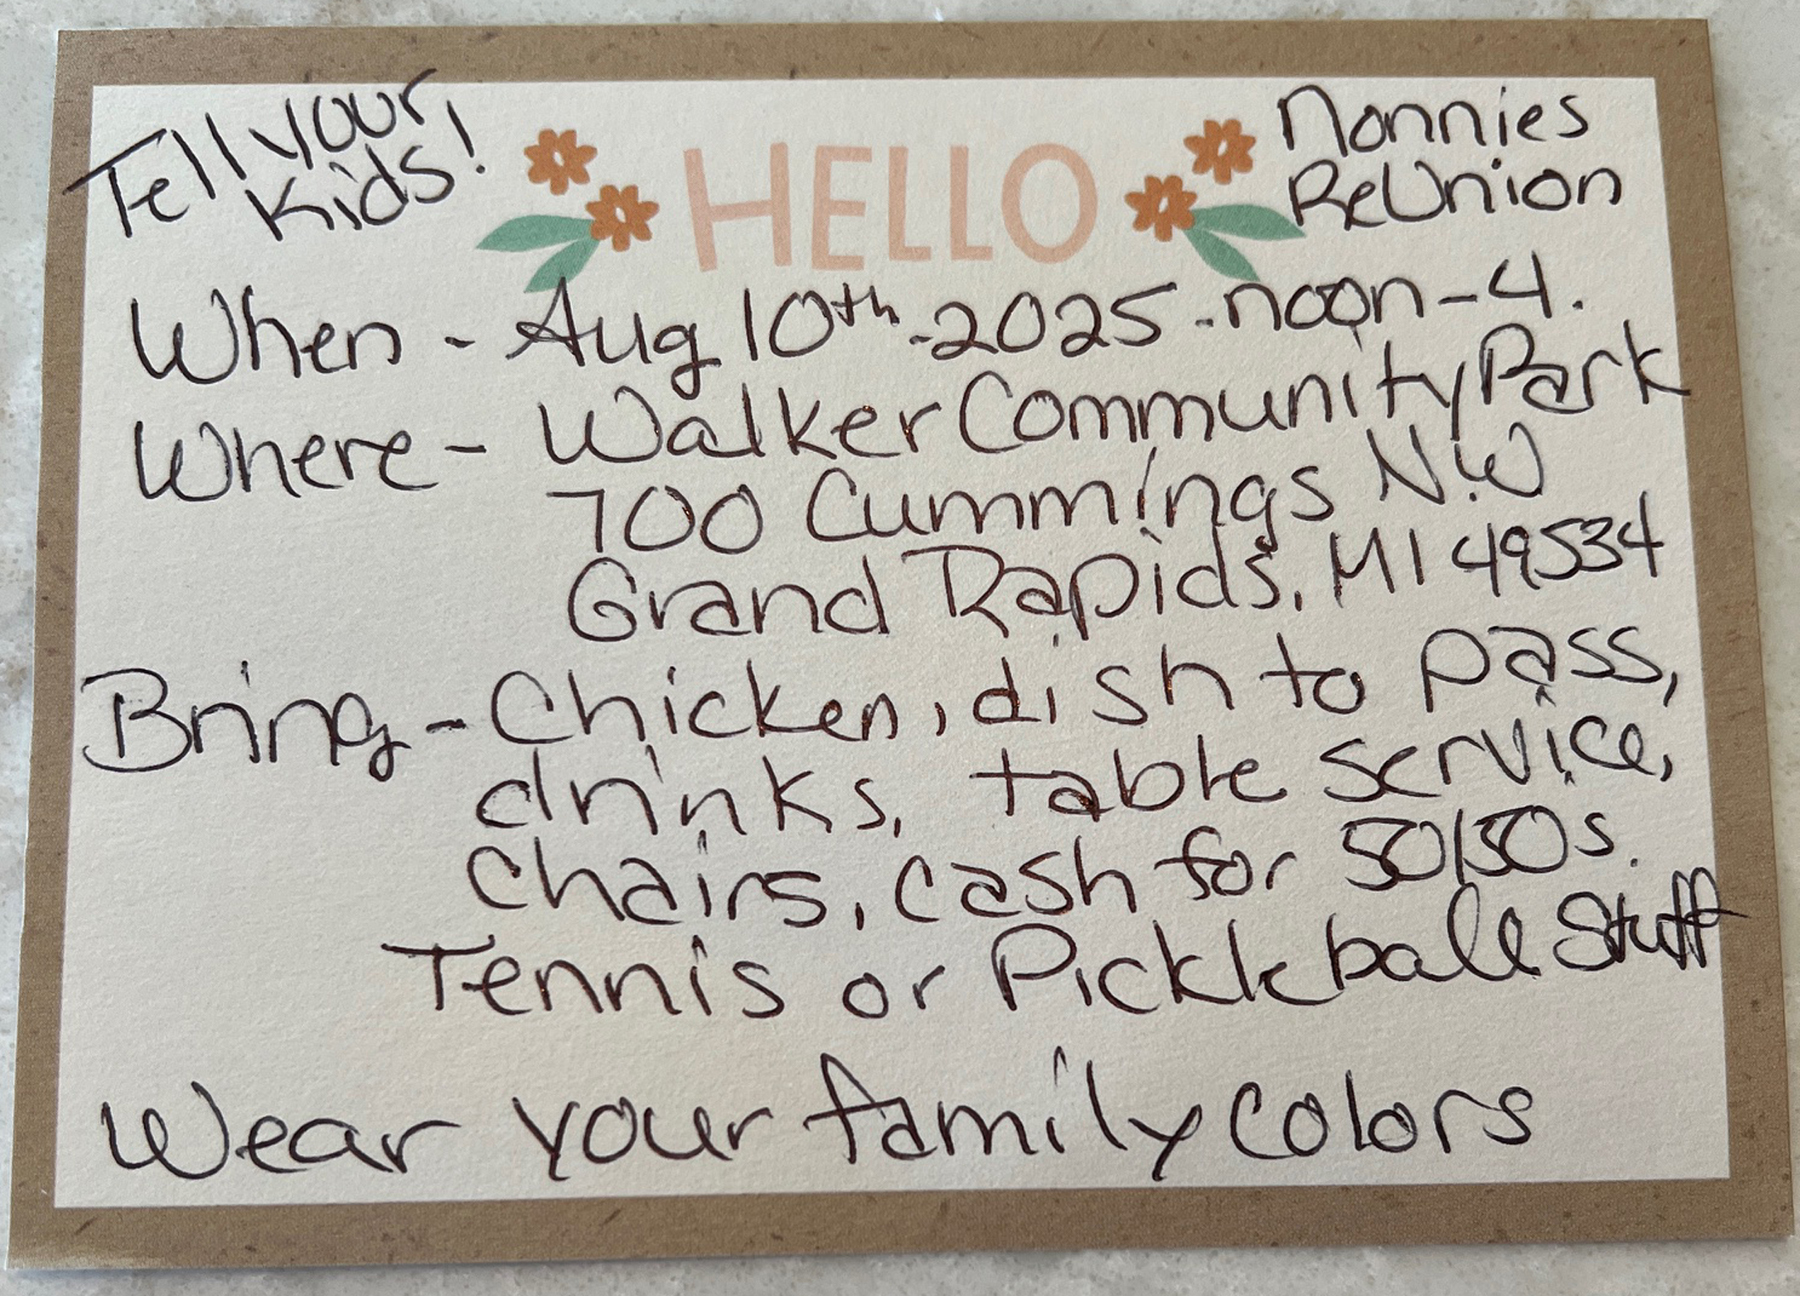 Tell your
Kids!
HELLO
Nonnies
ReUnion
When - Aug 10th - 2025 - noon - 4.
Where - Walker Community Park
700 Cummings N.W
Grand Rapids, MI 49534
Bring - Chicken, dish to pass,
drinks, table service,
chairs, cash for 50/50s.
Tennis or Pickleball Stuff
Wear your family colors